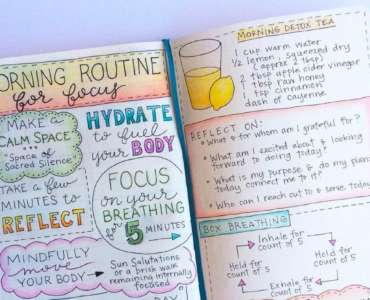 MORNING ROUTINE
for focus
MAKE A
CALM SPACE...
...Space of
Sacred Silence
HYDRATE
to fuel
your BODY
TAKE A few
MINUTES to
REFLECT
FOCUS
on your
BREATHING
for 5
MINUTES
MINDFULLY
move
YOUR BODY
Sun Salutations
or a brisk walk
remaining internally
focused
DAY
MORNING DETOX TEA
1 cup warm water
1/2 lemon, squeezed dry
(approx 2 tbsp)
2 tbsp apple cider vinegar
1 tbsp raw honey
1 tsp cinnamon
dash of cayenne
REFLECT ON:
• What & for whom am I grateful for?
• What am I excited about & looking
forward to doing today?
• What is my purpose & do my plans
today connect me to it?
• Who can I reach out to & serve today
BOX BREATHING
Inhale for
count of 5
Hold for
count of 5
Hold for
count of 5
Exhale for
count of 5